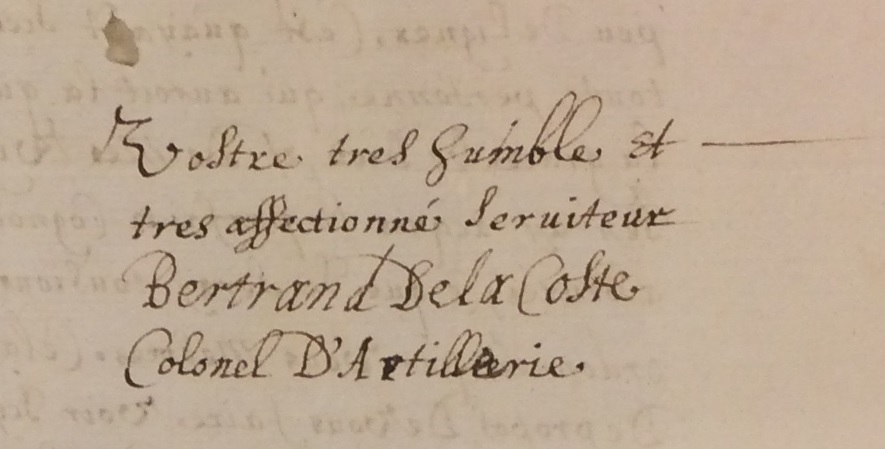 Vostre tres humble et
tres affectionné serviteur
Bertrand De la Coste
Colonel D'Artillerie.